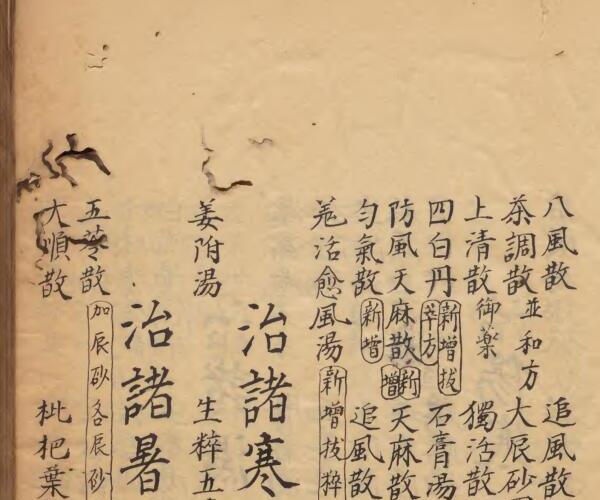 八風散 追風散
茶調散並和方 大辰砂
上清散御藥 獨活散
四白丹新增拔萃方 石膏湯
防風天麻散新增 天麻散
勻氣散新增 追風散
羗活愈風湯新增拔粹
治諸寒
姜附湯 生粹五
治諸暑
五苓散加辰砂名辰砂
大順散 枇杷葉